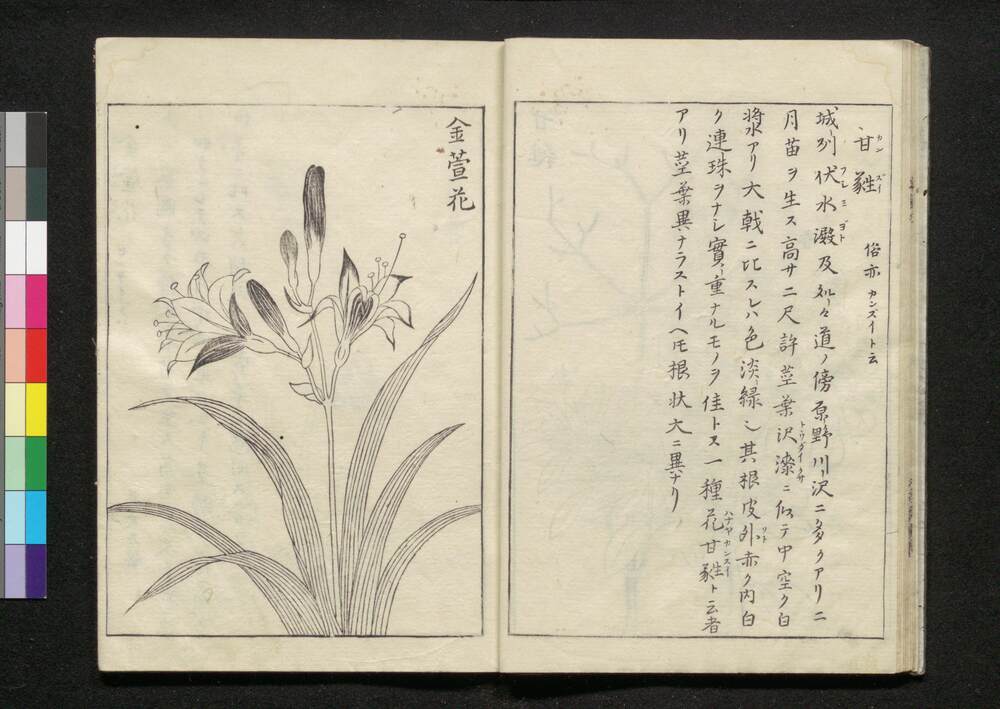 甘䔺 俗亦カンズイト云
城州伏水澱及処々道ノ傍原野川沢ニ多クアリ二
月苗ヲ生ス高サ二尺許莖葉沢漆ニ似テ中空ク白
漿アリ大戟ニ比スレハ色淡緑也其根皮外赤ク内白
ク連珠ヲナシ實重ナルモノヲ佳トス一種花甘遂ト云者
アリ莖葉異ナラストイヘ𪜈根状大ニ異ナリ
金萱花